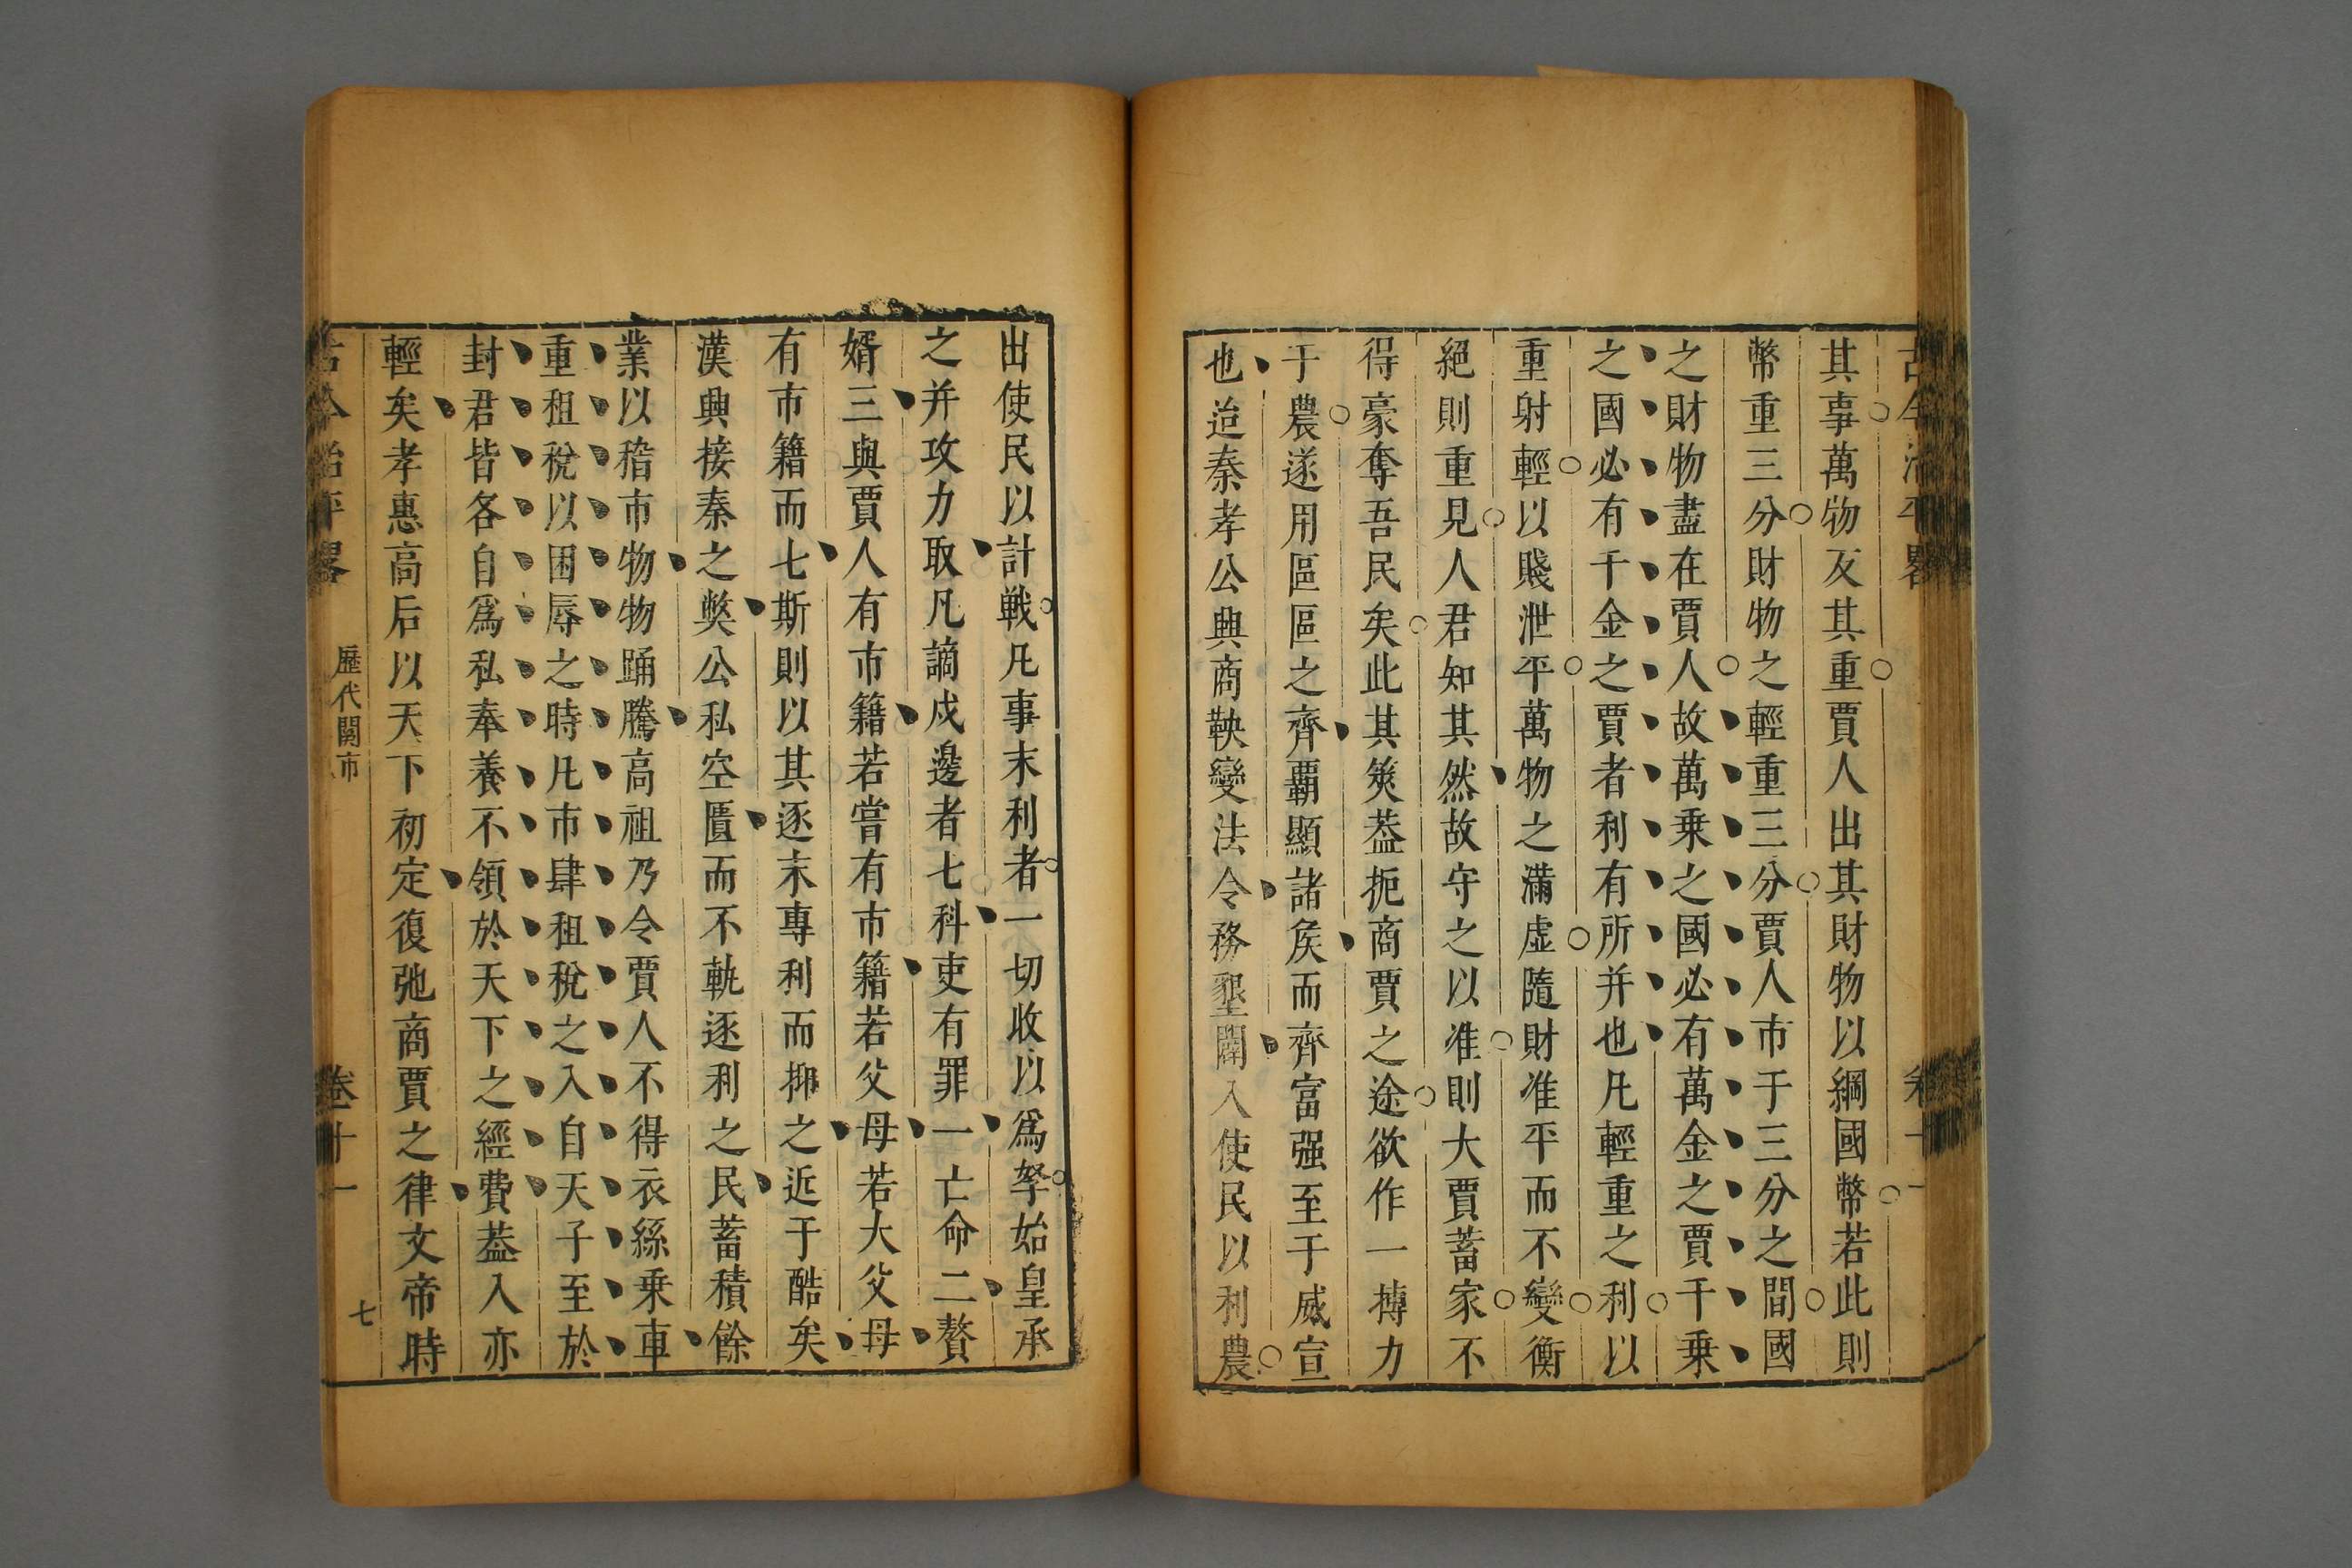 其事萬物反其重賈人出其財物以綱國幣若此則
幣重三分財物之輕重三分賈人市于三分之間國
之財物盡在賈人故萬乗之國必有萬金之賈千乗
之國必有千金之賈者利有所并也凡輕重之利以
重射輕以賤泄平萬物之滿虛隨財准平而不變衡
絕則重見人君知其然故守之以准則大賈蓄家不
得豪奪吾民矣此其筴葢扼商賈之途欲作一摶力
于農遂用區區之齊覇顯諸矦而齊富强至于威宣
也迨秦孝公興商鞅變法令務墾闢入使民以利農
出使民以計戰凡事末利者一切收以爲孥始皇承
之并攻力取凡謫戍邊者七科吏有罪一亡命二贅
婿三與賈人有市籍若嘗有市籍若父母若大父母
有市籍而七斯則以其逐末專利而抑之近于酷矣
漢興接秦之獘公私空匱而不軌逐利之民蓄積餘
業以稽市物物踊騰高祖乃令賈人不得衣絲乗車
重租稅以困辱之時凡市肆租稅之入自天子至於
封君皆各自爲私奉養不領於天下之經費葢入亦
輕矣孝惠高后以天下初定復弛商賈之律文帝時
古今治平畧 歷代關市 卷十一 七